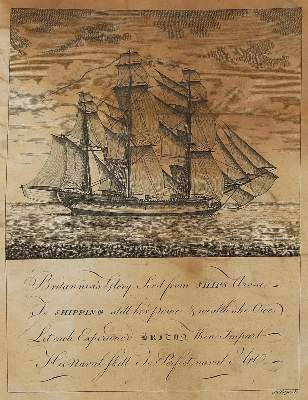 Britannia's Glory first from SHIPS Arose
To SHIPPING still her power & wealth she Owes
Let each Experienc'd BRITON then Impart
His Naval Skill To Perfect naval Art